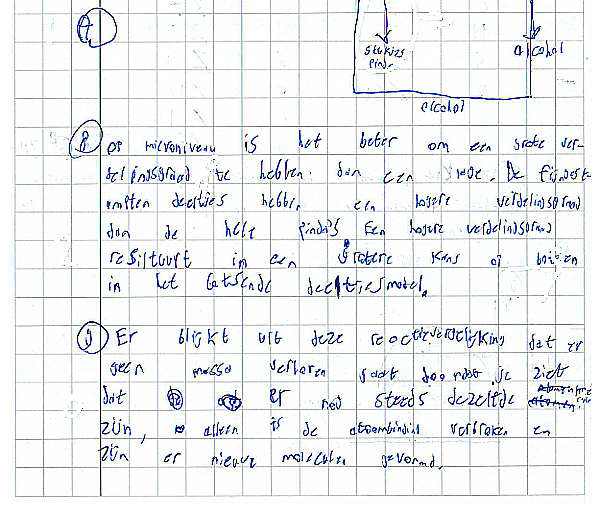 A
stukjes alcohol
pinda
alcohol
8 op microniveau is het beter om een grote ver-
delingsgraad te hebben. dan een lage. De fijngest-
ampten deeltjes hebben een hogere verdelingsgraad
dan de hele pinda's Een hogere verdelingsgraad
resulteert in een grotere kans op botsen
in het botsende deeltjesmodel.
9 Er blijkt uit deze reactievergelijking dat er
geen massa verloren gaat doordat je ziet
dat er nog steeds dezelfde
zijn, alleen is de atoombinding verbroken en
zijn er nieuwe moleculen gevormd.